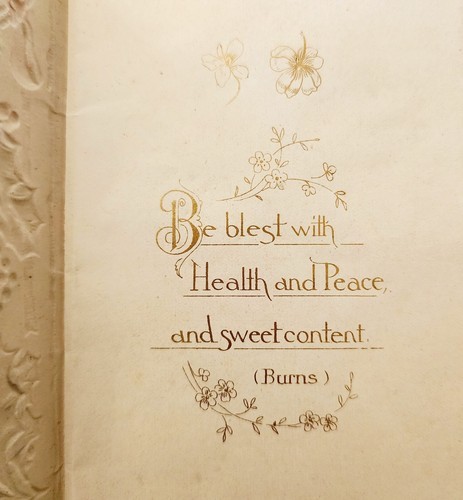 Be blest with
Health and Peace,
and sweet content.
(Burns)